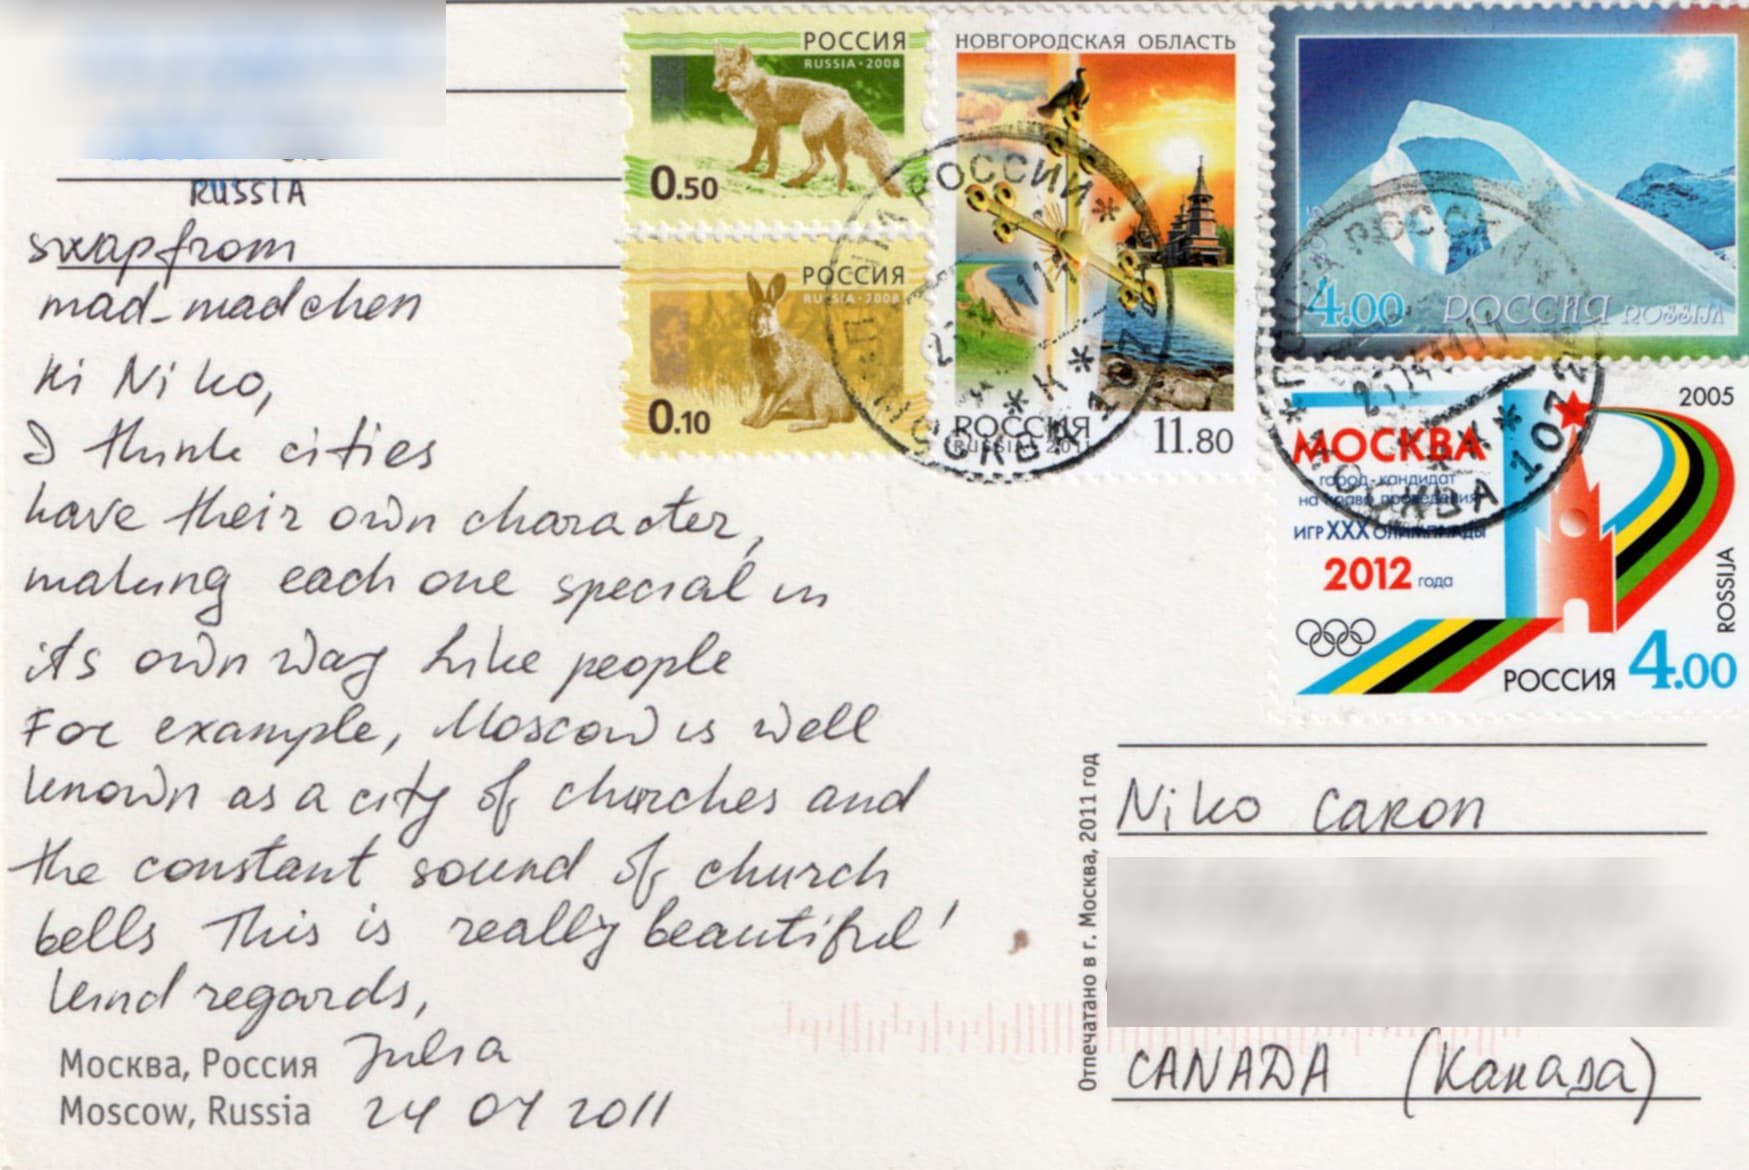 RUSSIA
swap from
mad_madchen
Hi Niko,
I think cities
have their own character,
making each one special in
its own way like people
For example, Moscow is well
known as a city of churches and
the constant sound of church
bells This is really beautiful!
kind regards,
Julia
24 04 2011
Москва, Россия
Moscow, Russia
РОССИЯ
RUSSIA • 2008
0.50
РОССИЯ
RUSSIA • 2008
0.10
НОВГОРОДСКАЯ ОБЛАСТЬ
РОССИЯ
11.80
4.00 РОССИЯ ROSSIJA
2005
МОСКВА
город-кандидат
на право проведения
ИГР XXX ОЛИМПИАДЫ
2012 года
ROSSIJA
РОССИЯ 4.00
ПОЧТА РОССИИ
МОСКВА 107
РОССИИ
МОСКВА 107
Отпечатано в г. Москва, 2011 год
Niko Caron
CANADA (Канада)